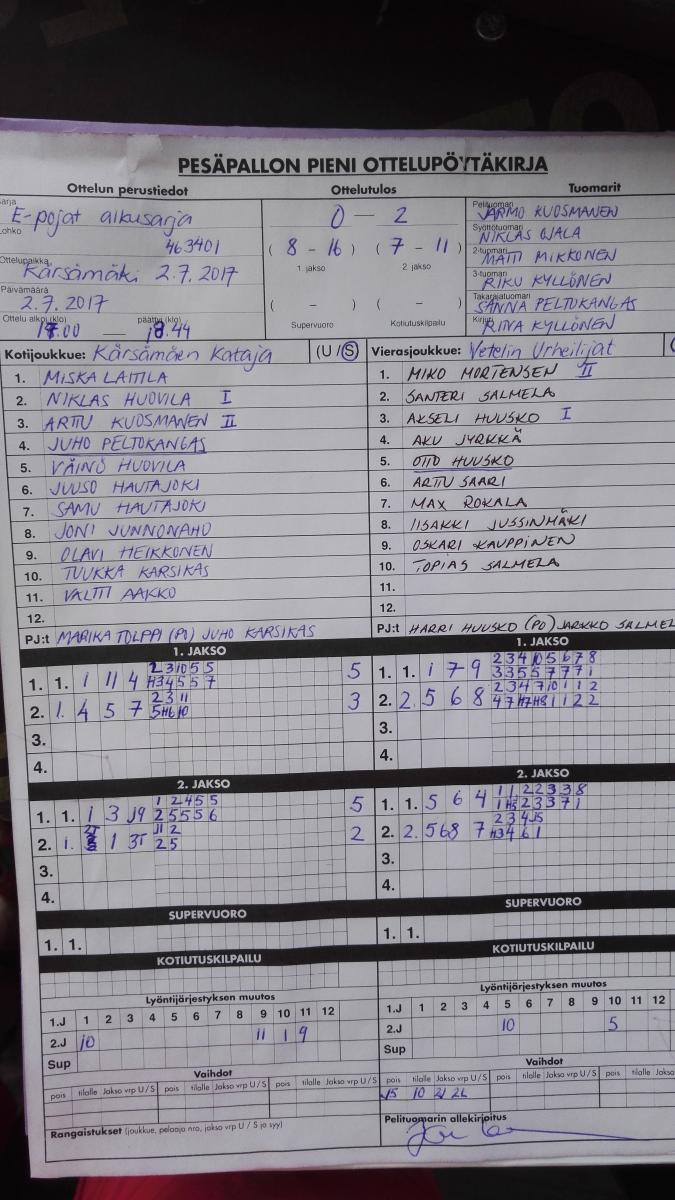 PESÄPALLON PIENI OTTELUPÖYTÄKIRJA
Ottelun perustiedot Ottelutulos Tuomarit
E-pojat alkusarja
463401
Ottelupaikka
Kärsämäki 2.7.2017
Päivämäärä
2.7.2017
Ottelu alkoi (klo) päättyi (klo)
17.00 18.44
0 – 2
( 8 – 16 ) ( 7 – 11 )
1. jakso 2. jakso
( – ) ( – )
Supervuoro Kotiutuskilpailu
Pelituomari
JARMO KUOSMANEN
Syöttötuomari
NIKLAS OJALA
2-tuomari
MATTI MIKKONEN
3-tuomari
RIKU KYLLÖNEN
Takarajatuomari
SANNA PELTOKANGAS
Kirjuri
RIINA KYLLÖNEN
Kotijoukkue: Kärsämäen Kataja (U / S)
1. MISKA LAITILA
2. NIKLAS HUOVILA I
3. ARTTU KUOSMANEN II
4. JUHO PELTOKANGAS
5. VÄINÖ HUOVILA
6. JUUSO HAUTAJOKI
7. SAMU HAUTAJOKI
8. JONI JUNNONAHO
9. OLAVI HEIKKONEN
10. TUUKKA KARSIKAS
11. VALTTI AAKKO
12.
PJ:t MARIKA TOLPPI (PJ) JUHO KARSIKAS
Vierasjoukkue: Vetelin Urheilijat
1. MIKO MORTENSEN II
2. SANTERI SALMELA
3. AKSELI HUUSKO I
4. AKU JYRKKÄ
5. OTTO HUUSKO
6. ARTTU SAARI
7. MAX ROKALA
8. IISAKKI JUSSINMÄKI
9. OSKARI KAUPPINEN
10. TOPIAS SALMELA
11.
12.
PJ:t HARRI HUUSKO (PJ) JARKKO SALMEL
1. JAKSO
1. 1. 1 11 4 5
2. 1. 4 5 7 3
3.
4.
1. JAKSO
1. 1. 1 7 9
2. 2. 5 6 8
3.
4.
2. JAKSO
1. 1. 1 3 J9 5
2. 1. 1 2
3.
4.
2. JAKSO
1. 1. 5 6 4
2. 2. 5 6 8 7
3.
4.
SUPERVUORO
1. 1.
SUPERVUORO
1. 1.
KOTIUTUSKILPAILU
KOTIUTUSKILPAILU
Lyöntijärjestyksen muutos
1.J 1 2 3 4 5 6 7 8 9 10 11 12
2.J 10 11 1 9
Sup
Lyöntijärjestyksen muutos
1.J 1 2 3 4 5 6 7 8 9 10 11 12
2.J 10 5
Sup
Vaihdot
pois tilalle Jakso vrp U / S pois tilalle Jakso vrp U / S pois tilalle Jakso vrp U / S
Vaihdot
pois tilalle Jakso vrp U / S pois tilalle Jakso vrp U / S pois tilalle Jakso
J5 10
Rangaistukset (joukkue, pelaaja nro, jakso vrp U / S ja syy)
Pelituomarin allekirjoitus